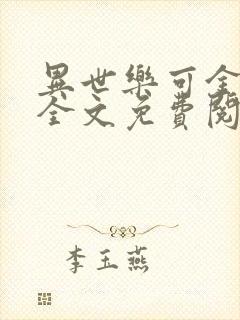 異世樂可全
全文免費閱
李玉燕